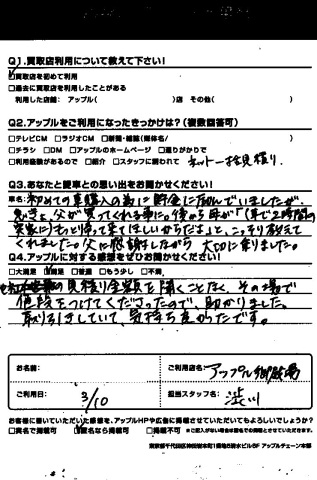 Q1.買取店利用について教えて下さい!
☑買取店を初めて利用
□過去に買取店を利用したことがある
利用した店舗: アップル( )店 その他( )
Q2.アップルをご利用になったきっかけは?(複数回答可)
□テレビCM □ラジオCM □新聞・雑誌(媒体名/ )
□チラシ □DM □アップルのホームページ □通りがかりで
□利用経験があるので □紹介 □スタッフに誘われて ネット一括見積り.
Q3.あなたと愛車との思い出をお聞かせください!
車名: 初めての車購入の為に貯金に励んでいましたが、
父が買ってくれる事に。後から母が「車で2時間の
実家にもっと帰って来てほしいからだよ」と、こっそり教えて
くれました。父に感謝しながら 大切に乗りました。
Q4.アップルに対する感想をぜひお聞かせください!
□大満足 ☑満足 □普通 □もう少し □不満
の見積り金額を聞くことなく、その場で
値段をつけてくださったので、助かりました。
取り引きしていて、気持ち良かったです。
お名前:
ご利用店名: アップル御殿場
ご利用日: 3/10
担当スタッフ名: 渋川
お客様に書いていただいた感想を、アップルHPや広告に掲載させていただいてもよろしいでしょうか?
□実名で掲載可 ☑匿名なら掲載可 □掲載不可 ※ご記入がない場合は匿名での掲載とさせていただきます。
東京都千代田区神田佐久間町1番地6清水ビル6F アップルチェーン本部